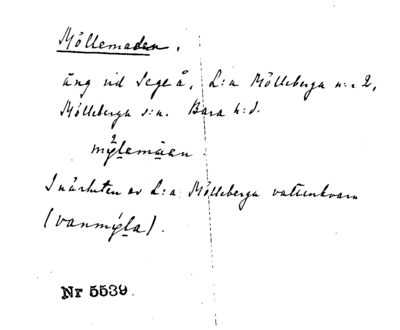 Möllemaden.
äng vid Sege å, L:a Mölleberga n:r 2,
Mölleberga s:n. Bara h:d.
mýlemáen.
I närheten av L:a Mölleberga vattenkvarn
(vanmýla).
Nr 5539